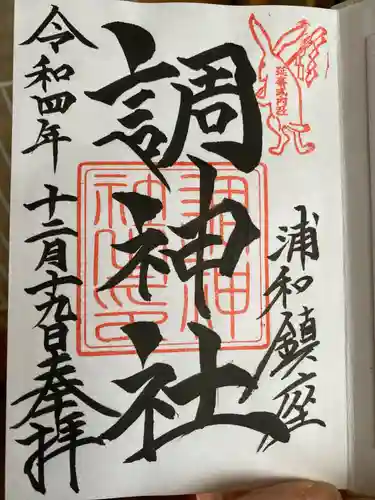 延喜式内社
浦和鎮座
調神社
調神社之印
令和四年 十二月十九日 奉拝